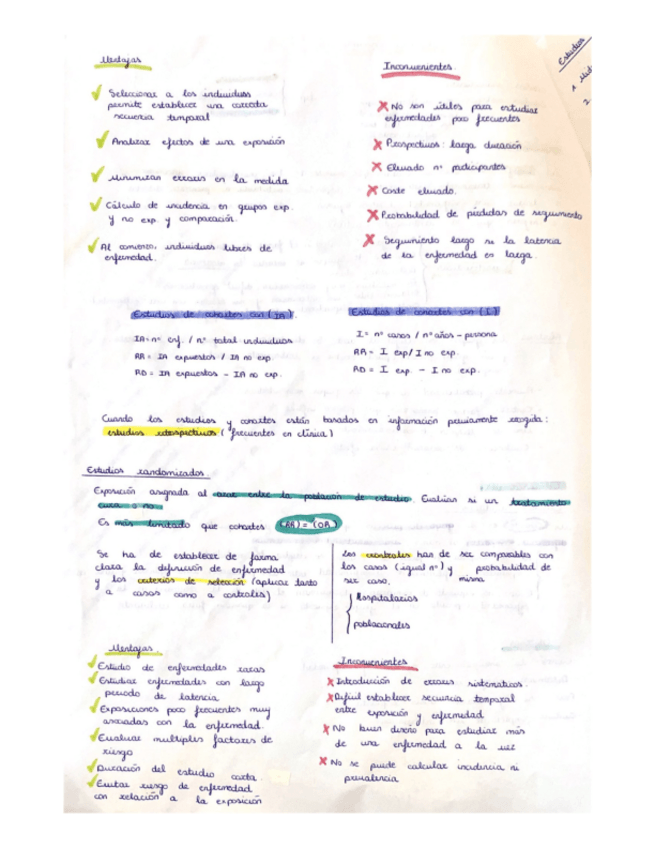 Ventajas
Seleccionar a los individuos
permite establecer una correcta
secuencia temporal
Analizar efectos de una exposición
Minimizan errores en la medida
Cálculo de incidencia en grupos exp.
y no exp. y comparación.
Al comienzo, individuos libres de
enfermedad.
Inconvenientes
No son útiles para estudiar
enfermedades poco frecuentes
Prospectivos: larga duración
Elevado nº participantes
Coste elevado.
Probabilidad de pérdidas de seguimiento
Seguimiento largo si la latencia
de la enfermedad es larga.
Estudios
Estudios de cohortes con (IA).
IA = nº enf. / nº total individuos
RR = IA expuestos / IA no exp.
RD = IA expuestos - IA no exp.
Estudios de cohortes con (I)
I = nº casos / nº años - persona
RR = I exp / I no exp.
RD = I exp. - I no exp.
Cuando los estudios y cohortes están basados en información previamente recogida:
estudios retrospectivos (frecuentes en clínica)
Estudios randomizados.
Exposición asignada al azar entre la población de estudio. Evalúan si un tratamiento
cura o no.
Es más limitado que cohortes (RR) = (OR)
Se ha de establecer de forma
clara la definición de enfermedad
y los criterios de selección (aplicar tanto
a casos como a controles)
Los controles han de ser comparables con
los casos (igual nº) y misma probabilidad de
ser caso.
Hospitalarios
poblacionales
Ventajas
Estudio de enfermedades raras
Estudiar enfermedades con largo
periodo de latencia
Exposiciones poco frecuentes muy
asociadas con la enfermedad.
Evaluar multiples factores de
riesgo
Duración del estudio corta
Evitar riesgo de enfermedad
con relación a la exposición
Inconvenientes
Introducción de errores sistematicos.
Dificil establecer secuencia temporal
entre exposición y enfermedad
No buen diseño para estudiar más
de una enfermedad a la vez
No se puede calcular incidencia ni
prevalencia